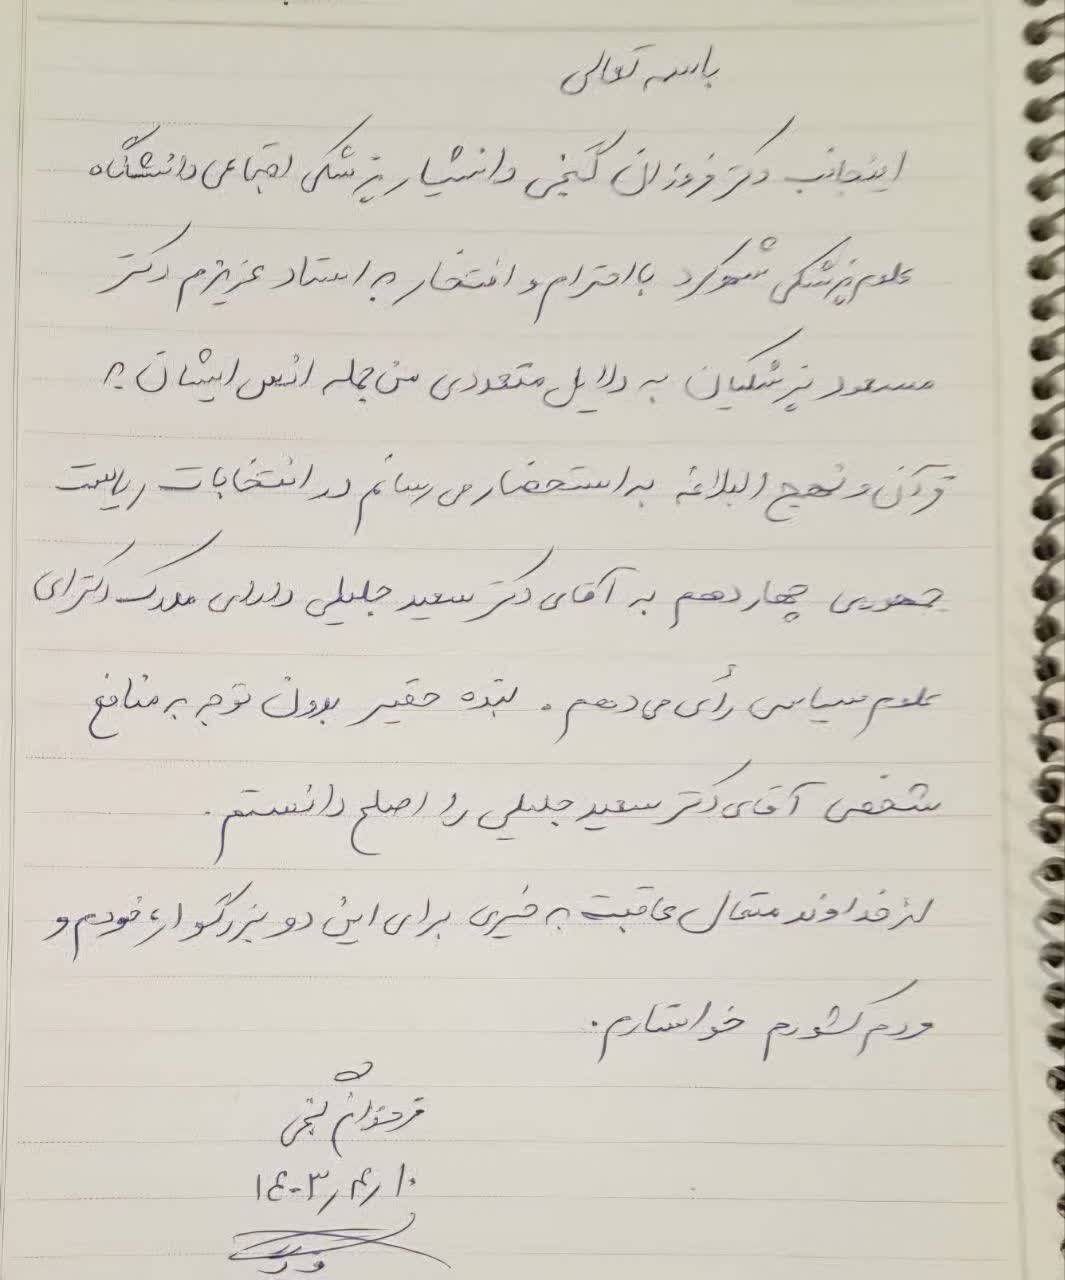 باسمه تعالی
اینجانب دکتر فروزان گنجی دانشیار پزشکی اجتماعی دانشگاه
علوم پزشکی شهرکرد با احترام و افتخار به استاد عزیزم دکتر
مسعود پزشکیان به دلایل متعددی من جمله انس ایشان به
قرآن و نهج البلاغه به استحضار می رسانم در انتخابات ریاست
جمهوری چهاردهم به آقای دکتر سعید جلیلی دارای مدرک دکترای
علوم سیاسی رأی می دهم. بنده حقیر بدون توجه به منافع
شخصی آقای دکتر سعید جلیلی را اصلح دانستم.
از خداوند متعال عاقبت به خیری برای این دو بزرگوار، خودم و
مردم کشورم خواستارم.
فروزان گنجی
۱۴۰۳٫۴٫۱۰